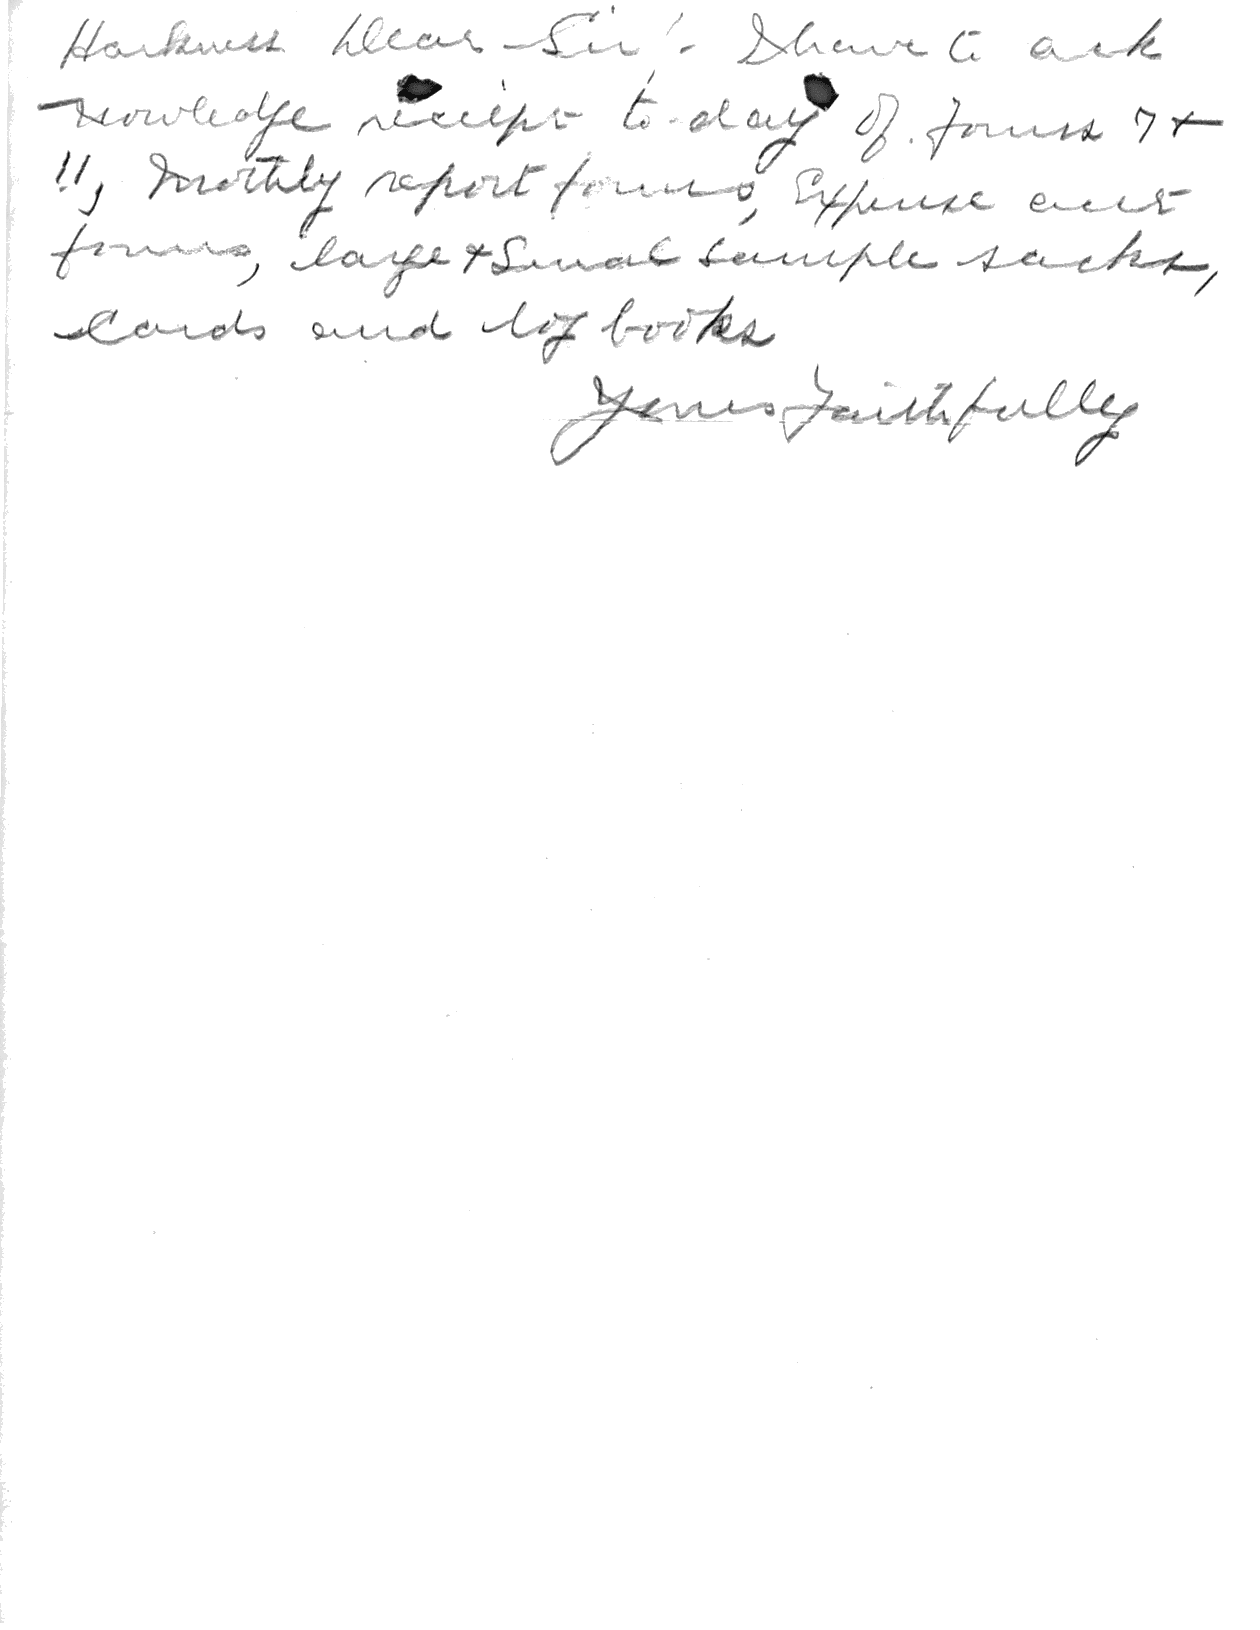 Harkness Dear Sir:- I have to ack
nowledge receipt to-day of. forms 7 +
11, Monthly report forms, Expense acct
forms, large + Small sample sacks,
Cards and log books
Yours Faithfully